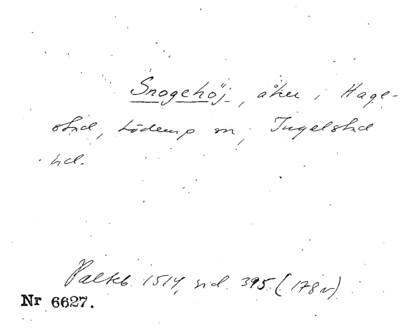 Snogehöj, åker i Hage-
stad, Löderup sn, Ingelstad
hd.
Palteb. 1514, sid. 395. (178v)
Nr 6627.